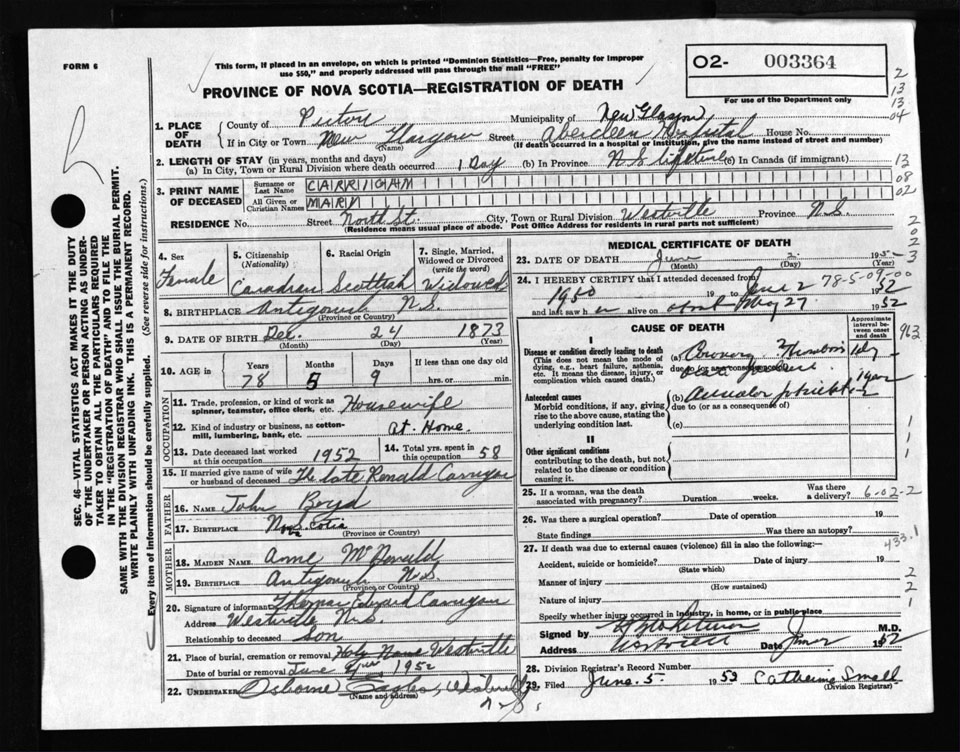 FORM 6
This form, if placed in an envelope, on which is printed "Dominion Statistics—Free, penalty for improper
use $50," and properly addressed will pass through the mail "FREE"
PROVINCE OF NOVA SCOTIA—REGISTRATION OF DEATH
O2- 003364
For use of the Department only
2
13
13
04
1. PLACE OF DEATH
County of Pictou Municipality of New Glasgow
If in City or Town New Glasgow Street Aberdeen Hospital House No.
(Name) (If death occurred in a hospital or institution, give the name instead of street and number)
2. LENGTH OF STAY (in years, months and days)
(a) In City, Town or Rural Division where death occurred 1 Day (b) In Province N S lifetime (c) In Canada (if immigrant)
13
08
02
3. PRINT NAME OF DECEASED
Surname or Last Name CARRIGAN
All Given or Christian Names MARY
RESIDENCE No. Street North St. City, Town or Rural Division Westville Province N.S.
(Residence means usual place of abode. Post Office Address for residents in rural parts not sufficient)
4. Sex
Female
5. Citizenship
(Nationality)
Canadian
6. Racial Origin
Scottish
7. Single, Married, Widowed or Divorced
(write the word)
Widowed
8. BIRTHPLACE Antigonish N.S.
(Province or Country)
9. DATE OF BIRTH Dec. 24 1873
(Month) (Day) (Year)
10. AGE in
Years Months Days If less than one day old
78 5 9 hrs. or min.
OCCUPATION
11. Trade, profession, or kind of work as spinner, teamster, office clerk, etc. Housewife
12. Kind of industry or business, as cotton-mill, lumbering, bank, etc. At. Home.
13. Date deceased last worked at this occupation 1952
14. Total yrs. spent in this occupation 58
15. If married give name of wife or husband of deceased The late Ronald Carrigan
FATHER
16. NAME John Boyd
17. BIRTHPLACE
(Province or Country)
MOTHER
18. MAIDEN NAME Anne McDonald
19. BIRTHPLACE Antigonish N.S.
(Province or Country)
20. Signature of informant Thomas Edward Carrigan
Address Westville N.S.
Relationship to deceased Son
21. Place of burial, cremation or removal Holy Name Westville
Date of burial or removal June 1952
22. UNDERTAKER Osborne Westville
(Name and address)
N.S.
MEDICAL CERTIFICATE OF DEATH
23. DATE OF DEATH June
(Month) (Day) (Year)
24. I HEREBY CERTIFY that I attended deceased from 78-5-09-00
1950 19 to June 2 1952
and last saw h er alive on about May 27 1952
CAUSE OF DEATH
Approximate interval between onset and death
I
Disease or condition directly leading to death
(This does not mean the mode of dying, e.g., heart failure, asthenia, etc. It means the disease, injury, or complication which caused death.
(a) Coronary Thrombosis 1 day
due to (or as a consequence of)
Antecedent causes
Morbid conditions, if any, giving rise to the above cause, stating the underlying condition last.
(b) Auricular
due to (or as a consequence of)
(c)
II
Other significant conditions
contributing to the death, but not related to the disease or condition causing it.
25. If a woman, was the death associated with pregnancy? Duration weeks. Was there a delivery? 6-02-2
26. Was there a surgical operation? Date of operation 19
State findings Was there an autopsy?
433.1
27. If death was due to external causes (violence) fill in also the following:—
Accident, suicide or homicide? Date of injury 19
(State which)
Manner of injury
(How sustained)
Nature of injury
Specify whether injury occurred in industry, in home, or in public place
Signed by M.D.
Address Westville Date June 2 1952
28. Division Registrar's Record Number
29. Filed June. 5. 1952 Catherine Small
(Division Registrar)
SEC. 46—VITAL STATISTICS ACT MAKES IT THE DUTY
OF THE UNDERTAKER OR PERSON ACTING AS UNDER-
TAKER TO OBTAIN ALL THE PARTICULARS REQUIRED
IN THE "REGISTRATION OF DEATH" AND TO FILE THE
SAME WITH THE DIVISION REGISTRAR WHO SHALL ISSUE THE BURIAL PERMIT.
WRITE PLAINLY WITH UNFADING INK. THIS IS A PERMANENT RECORD.
Every item of information should be carefully supplied. (See reverse side for instructions.)